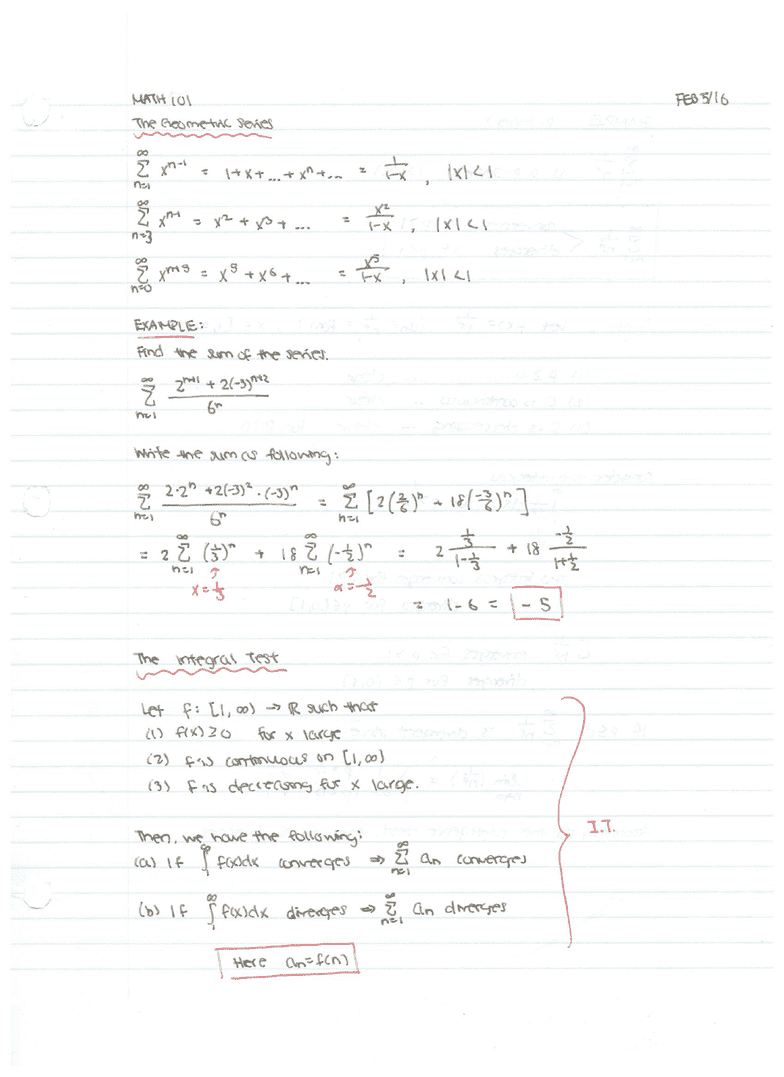 MATH 101 FEB 5/16
The Geometric Series
∞∑n=1 x^(n-1) = 1+x+...+x^n+... = 1/(1-x), |x|<1
∞∑n=3 x^(n-1) = x^2 + x^3 + ... = x^2/(1-x), |x|<1
∞∑n=0 x^(n+5) = x^5 + x^6 + ... = x^5/(1-x), |x|<1
EXAMPLE:
Find the sum of the series.
∞∑n=1 (2^(n+1) + 2(-3)^(n+2))/6^n
Write the sum as following:
∞∑n=1 (2·2^n + 2(-3)^2·(-3)^n)/6^n = ∞∑n=1 [2(2/6)^n + 18(-3/6)^n]
= 2 ∞∑n=1 (1/3)^n + 18 ∞∑n=1 (-1/2)^n = 2 (1/3)/(1-1/3) + 18 (-1/2)/(1+1/2)
x=1/3 x=-1/2
= 1-6 = -5
The Integral Test
Let f: [1,∞) → ℝ such that
(1) f(x)≥0 for x large
(2) f is continuous on [1,∞)
(3) f is decreasing for x large.
I.T.
Then, we have the following:
(a) If ∫1^∞ f(x)dx converges ⇒ ∞∑n=1 an converges
(b) If ∫1^∞ f(x)dx diverges ⇒ ∞∑n=1 an diverges
Here an=f(n)